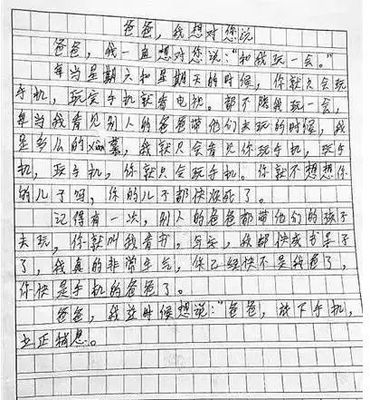 爸爸，我想对您说
爸爸，我一直想对您说："和我玩一会。"
每当星期六和星期天的时候，你就只会玩
手机，玩完手机就看电视。都不陪我玩一会，
每当我看见别人的爸爸带他们去玩的时候，我
是多么的xian慕，我就只会看见你玩手机，玩手
机，玩手机，你就只会玩手机。你就不想想你
的儿子吗，你的儿子都快疯死了。
记得有一次，别人的爸爸都带他们的孩子
去玩，你就叫我看书，写字，我都快成书呆子
了，我真的非常生气，你已经快不是我爸了，
你快是手机的爸爸了。
爸爸，我这时候想说："爸爸，放下手机，
立正稍息。